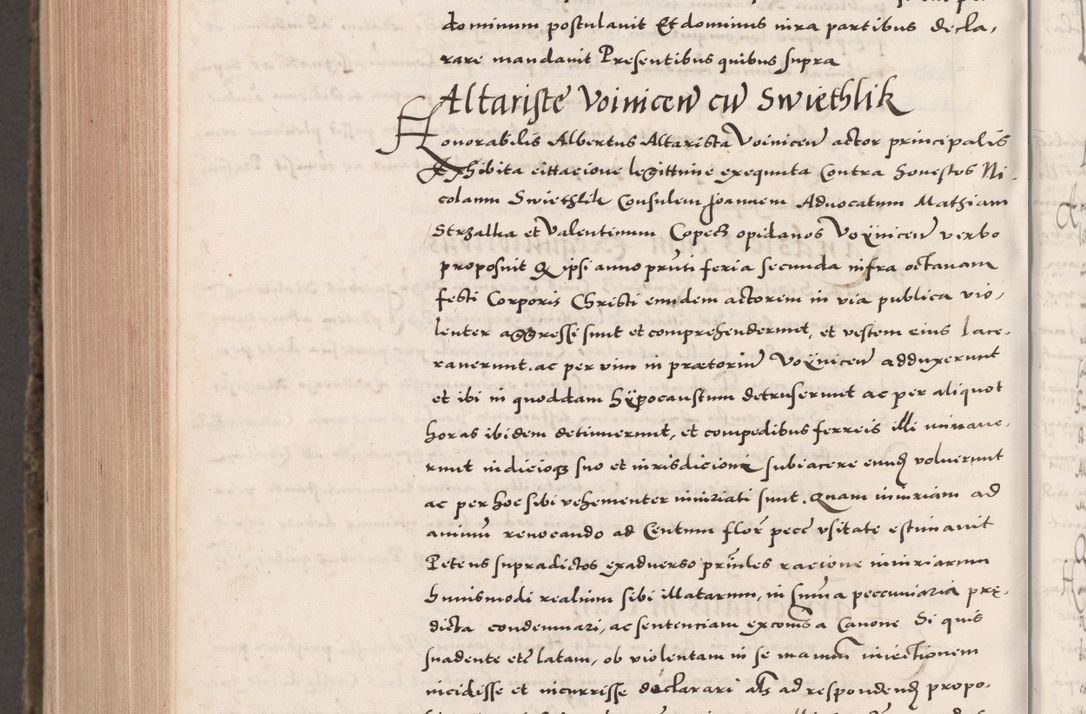 dominum postulavit Et dominus nira partibus decla,
rare mandavit Presentibus quibus supra
Altariste Voinicen cu Swiethlik
Honorabilis Albertus Altarista Voinicen actor principalis
Exhibita cittacione legittime exequuta Contra honestos Ni,
colaum Swiethlik Consulem Joannem Advocatum Mathiam
Strzalka et Valentinum Copech opidanos Voÿnicen verbo
proposuit Q ipsi anno pnti feria secunda infra octavam
festi Corporis Christi eundem actorem in via publica vio,
lenter aggressi sunt et comprehenderunt, et vestem eius lace,
raverunt. ac per vim in prætoriu Voÿnicen adduxerunt
et ibi in quoddam hÿpocaustum detruserunt ac per aliquot
horas ibidem detinuerunt, et compedibus ferreis illi minave,
runt iudicioq suo et iurisdicioni subiacere eund voluerunt
ac per hoc sibi vehementer iniuriati sunt. Quam iniuriam ad
animu revocando ad Centum flor pecc usitate estimavit
Petens supradictos exadverso prinles racione iniuriarum
huiusmodi realium sibi illatarum, in suma peccuniaria prę,
dicta condemnari, ac sentenciam excomis a Canone Si quis
suadente etc latam, ob violentam in se manum iniectionem
incidisse et incurrisse declarari als ad respondend propo,